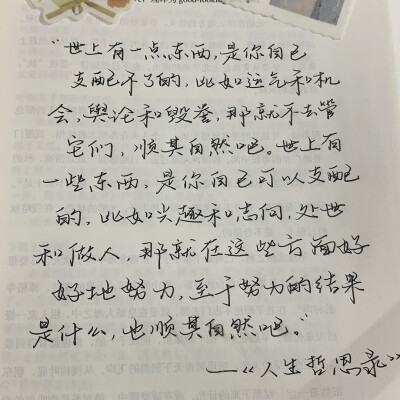 good-lookin
“世上有一点东西，是你自己
支配不了的，比如运气和机
会，舆论和毁誉，那就不去管
它们，顺其自然吧。世上有
一些东西，是你自己可以支配
的，比如兴趣和志向，处世
和做人，那就在这些方面好
好地努力，至于努力的结果
是什么，也顺其自然吧。”
——《人生哲思录》